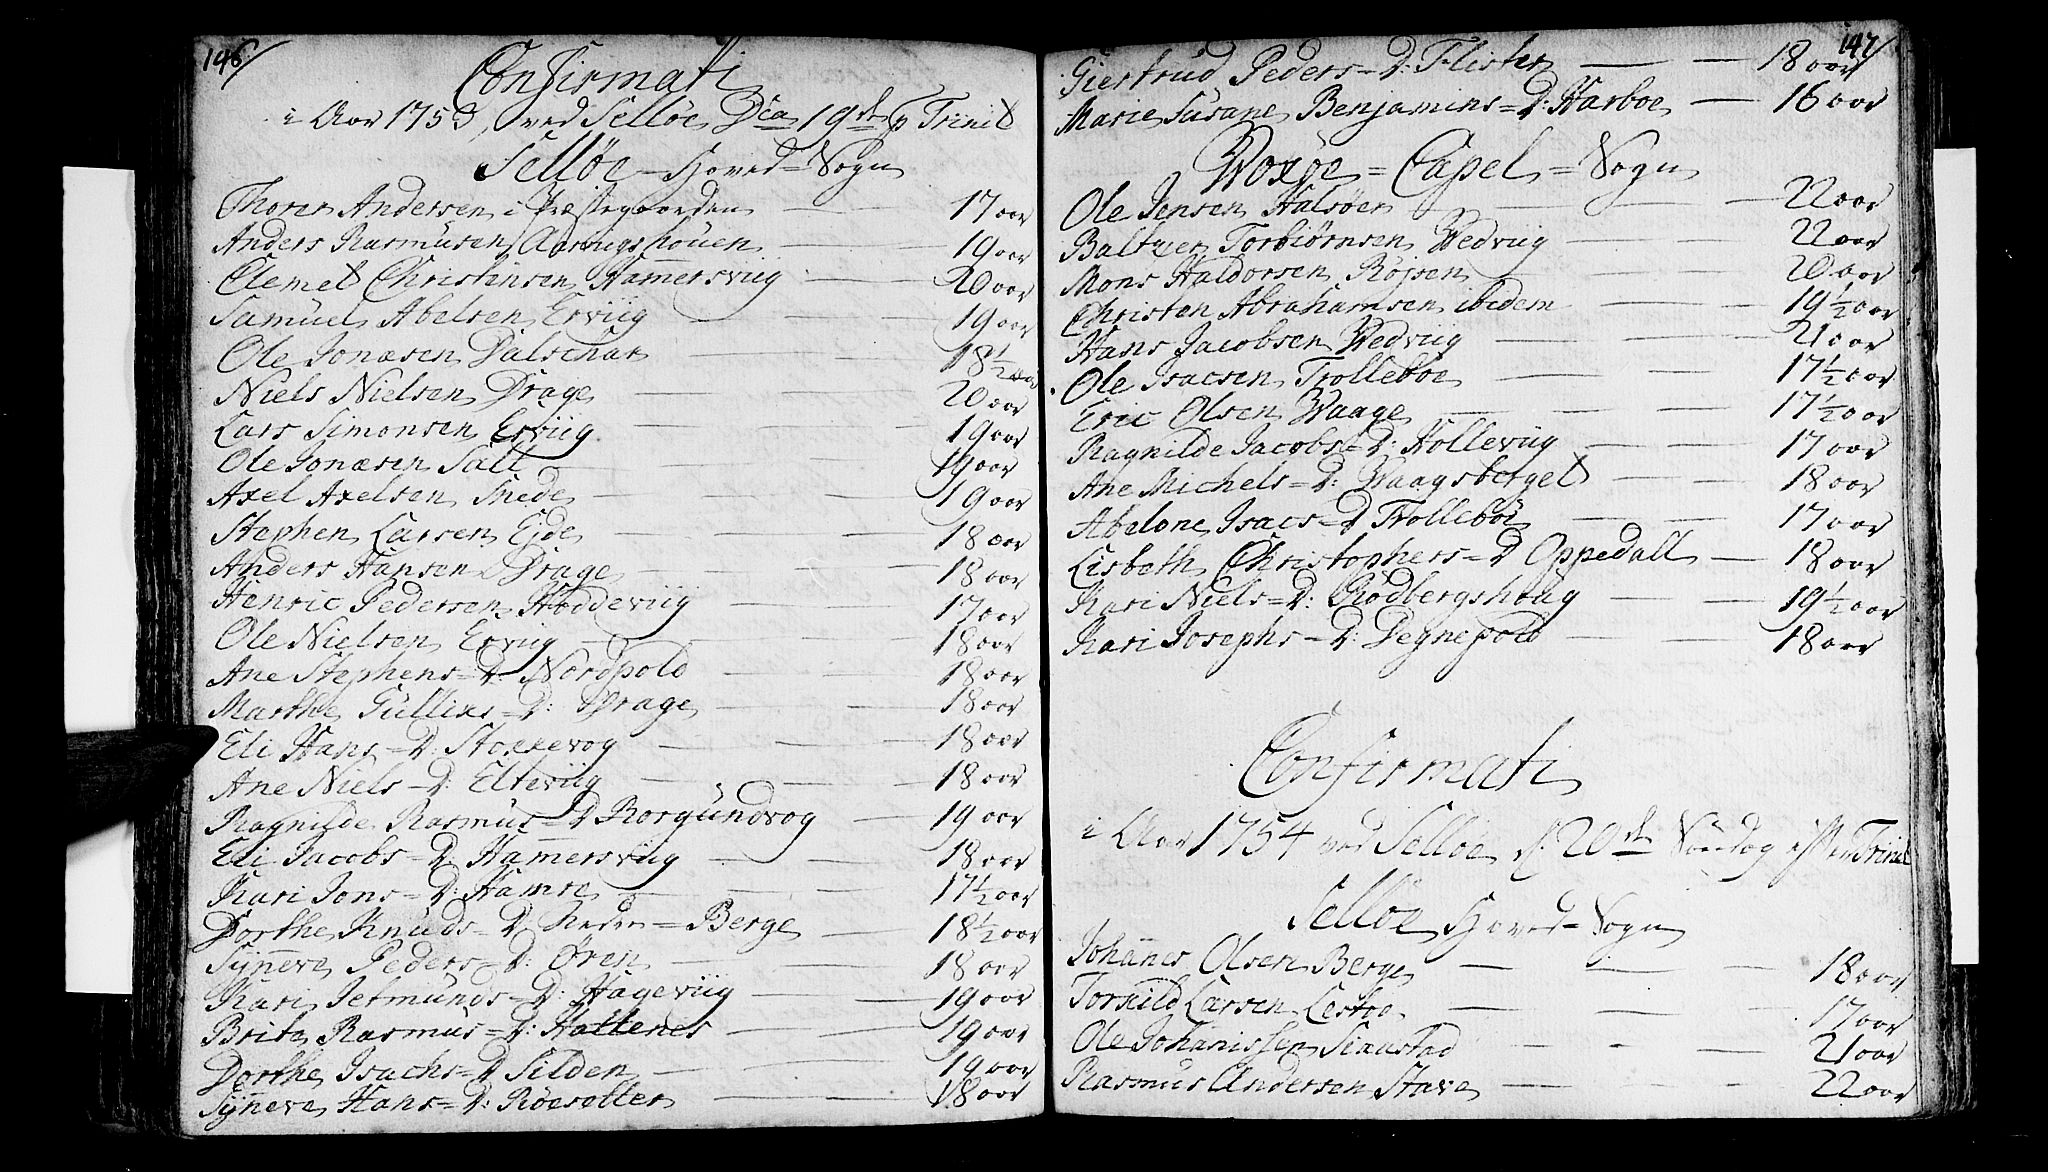 146/
Confirmati
i Aar 1753, ved Selløe Dca 19de p Trinit
Selløe Hoved=Sogn
Thorer Andersen i Præstegaarden — 17 aar
Anders Rasmusen — 19 aar
Clemet Christensen Hamersviig — 20 aar
Samuel Abelsen Erviig — 19 aar
Ole Jonæsen — 18½ aar
Niels Nielsen Drage — 20 aar
Lars Simonsen Erviig — 19 aar
Ole Jonæsen Salt — 19 aar
Axel Axelsen — 19 aar
Stephen Larsen Ejde — 18 aar
Anders Hansen Drage — 18 aar
Henric Pedersen Hoddeviig — 17 aar
Ole Nielsen Erviig — 18 aar
Ane Stephens=D: Nordpold — 18 aar
Marthe Gullixs=D: Drage — 18 aar
Eli Hans=D: Stokkevog — 18 aar
Ane Niels=D: Elteviig — 18 aar
Ragnilde Rasmus=D Borgundvog — 19 aar
Eli Jacobs=D: Hamersviig — 18 aar
Kari Jons=D: Hamre — 17½ aar
Dorthe Knuds=D: Neder=Berge — 18½ aar
Synneve Peders=D: Ören — 18 aar
Kari Jetmunds=D: Hageviig — 19 aar
Brite Rasmus=D: Hattenes — 19 aar
Dorthe Isachs=D Silden — 19 aar
Synneve Hans=D: Röesetter — 18 aar
147/
Giertrud Peders=D: Flister — 18 aar
Marie Susane Benjamins=D: Harboe — 16 aar
Woxøe=Capel=Sogn
Ole Jensen Halsöer — 22 aar
Baltzer Torbiörnsen Wedviig — 22 aar
Mons Haldorsen Röjsen — 20 aar
Christen Abrahamsen ibidem — 19½ aar
Hans Jacobsen Wedviig — 21 aar
Ole Isacsen Trolleböe — 17½ aar
Eric Olsen Waage — 17½ aar
Ragnilde Jacobs=D: Holleviig — 17 aar
Ane Michels=D: Waagsberget — 18 aar
Abelone Isacs=D Trolleböe — 17 aar
Lisbeth Christophers=D Oppedall — 18 aar
Kari Niels=D: Rödbergshoug — 19½ aar
Kari Josephs=D: Degnepold — 18 aar
Confirmati
i Aar 1754 ved Selløe d. 20de Söndag efter Trinit
Selløe Hoved=Sogn
Johannes Olsen Berge — 18 aar
Torkild Larsen Lestoe — 17 aar
Ole Johanissen — 21 aar
Rasmus Andersen Stave — 22 aar